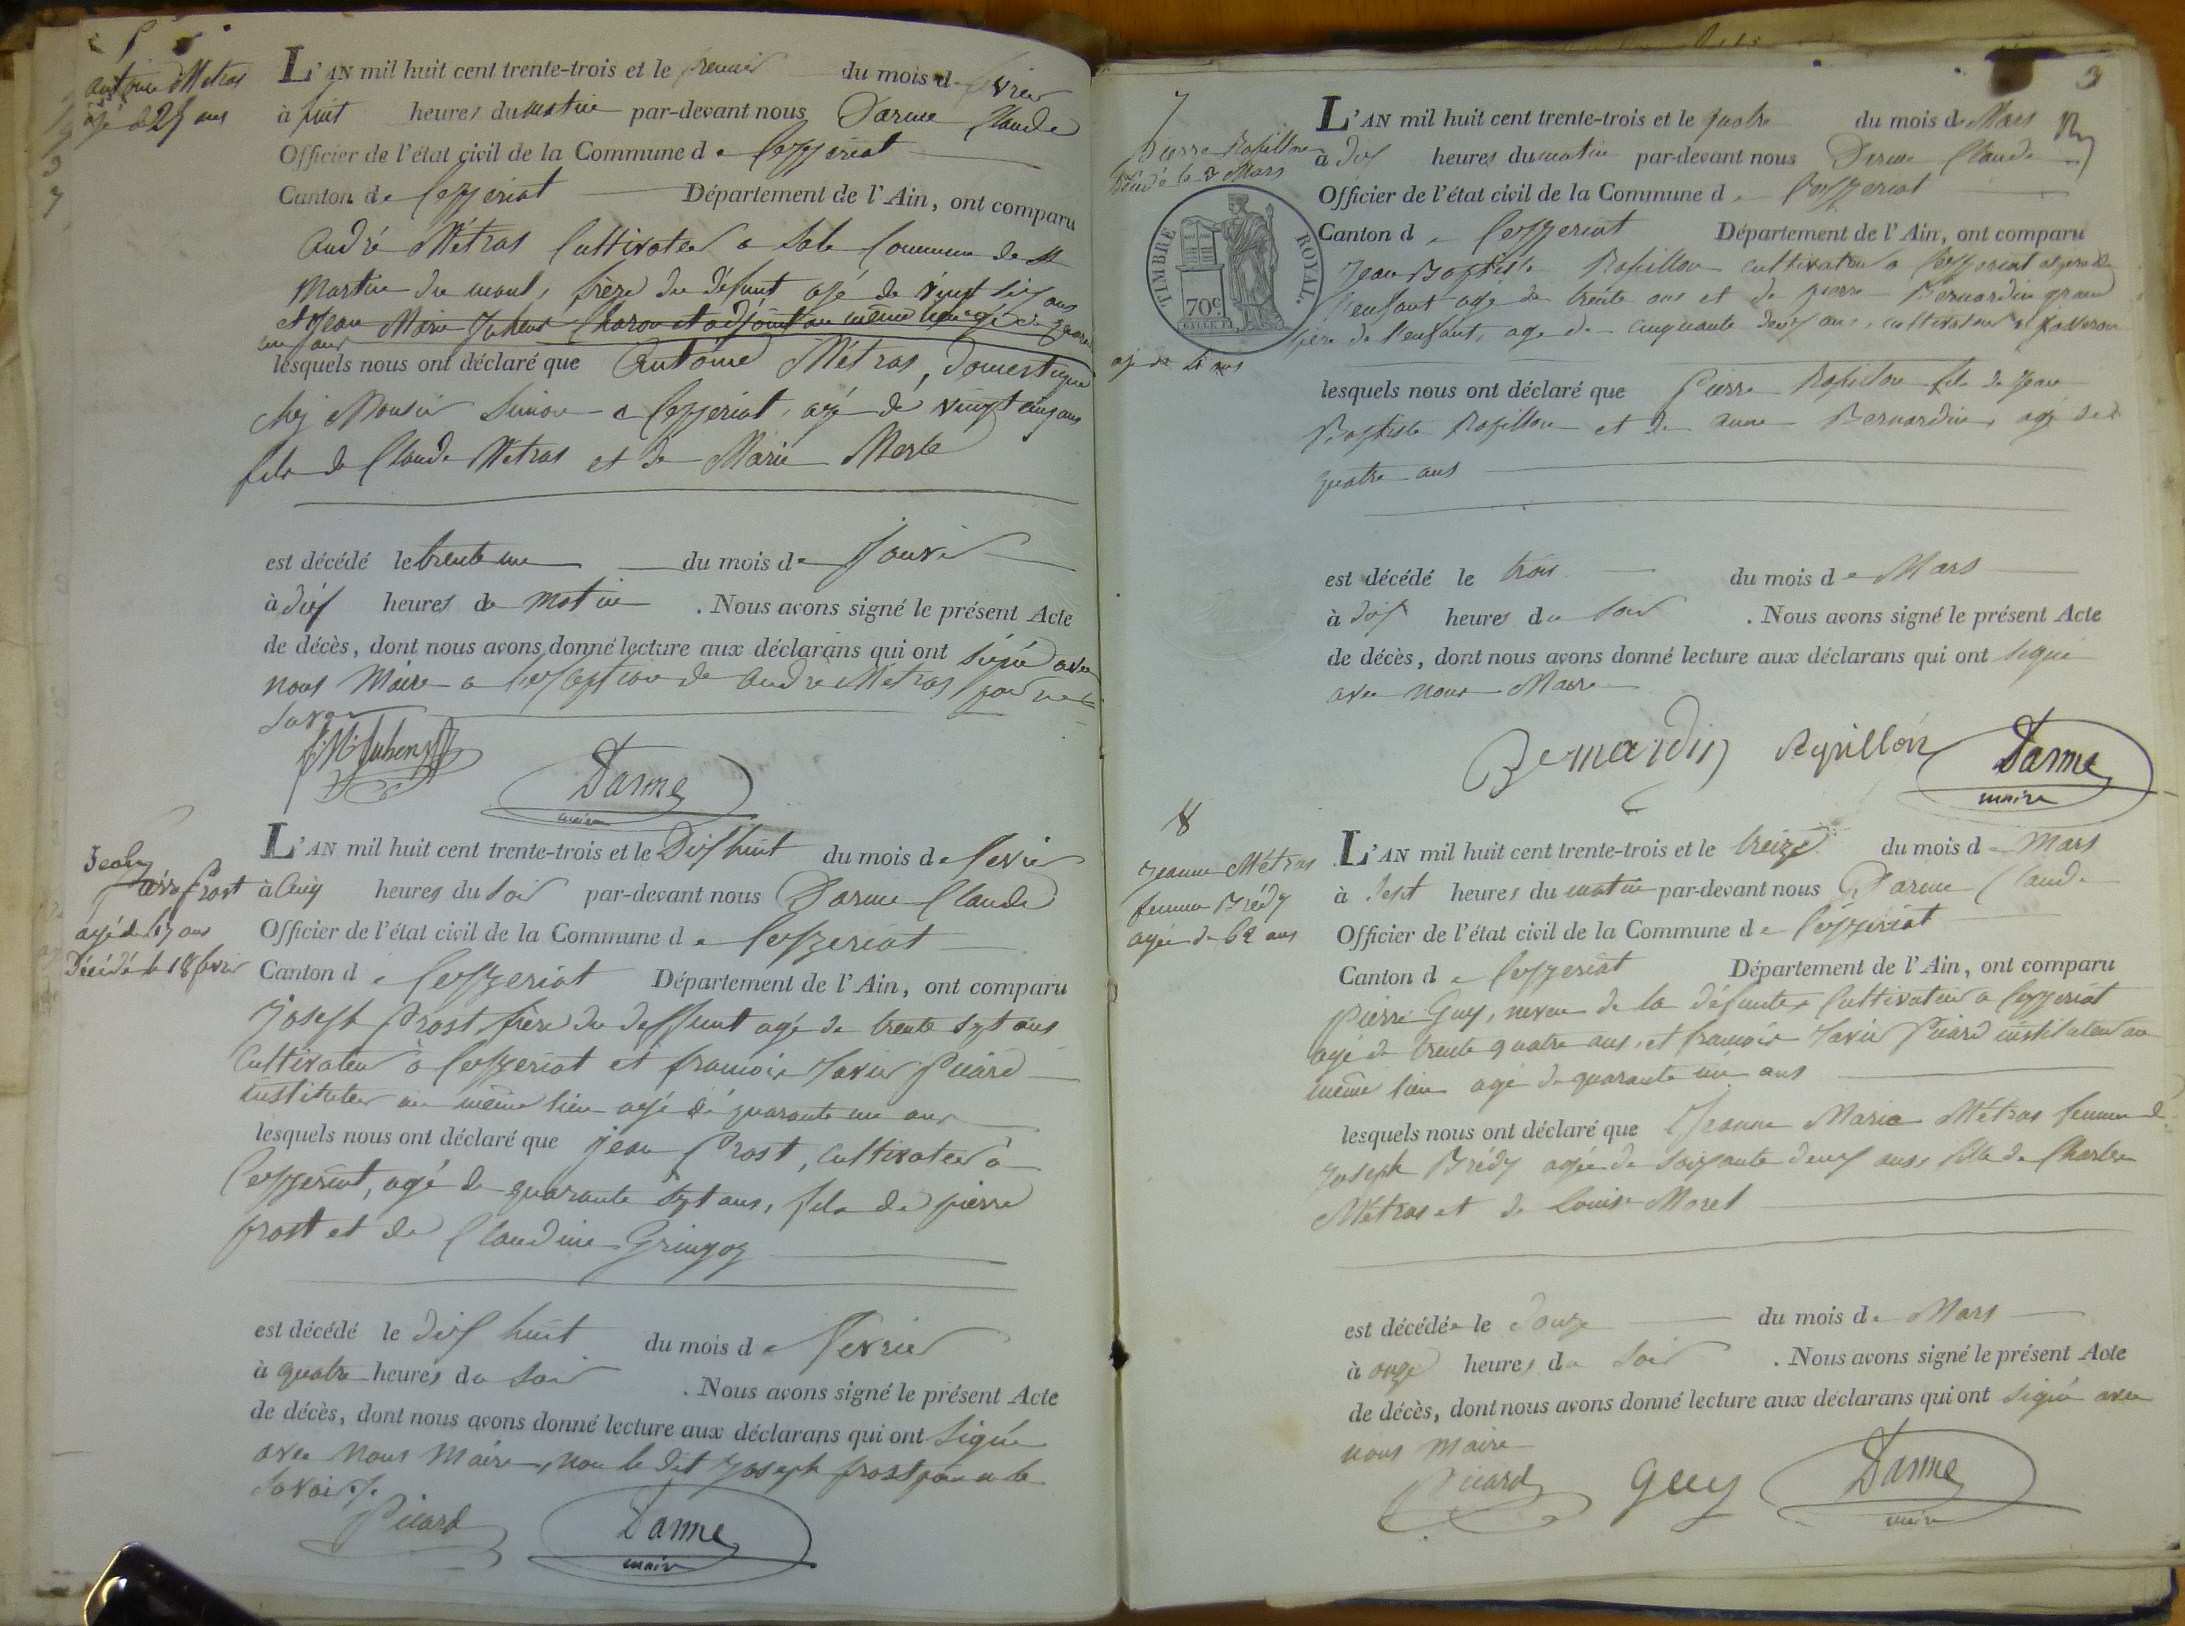 Antoine Métras
âgé de 25 ans
L'AN mil huit cent trente-trois et le premier du mois de fevrier
à huit heures du matin par-devant nous Darme Claude
Officier de l'état civil de la Commune de Ceyzeriat
Canton de Ceyzeriat Département de l'Ain, ont comparu
André Métras Cultivateur a Commune de St
Martin du mont, frère du défunt agé de vingt six ans
et Jean Marie Juhens Charon et adjoint au même lieu agé de
lesquels nous ont déclaré que Antoine Métras, Domestique
chez Monsieur Simon a Ceyzeriat, agé de vingt cinq ans
fils de Claude Métras et de Marie Merle
est décédé le trente un du mois de Janvier
à dix heures de matin . Nous avons signé le présent Acte
de décès, dont nous avons donné lecture aux déclarans qui ont signé avec
nous Maire a l'exeption de André Métras pour ne
Savoir
J. M. Juhens
Darme
maire
Jean
Prost
agé de 47 ans
Décédé le 18 fevrier
L'AN mil huit cent trente-trois et le Dix huit du mois de fevrier
à Cinq heures du Soir par-devant nous Darme Claude
Officier de l'état civil de la Commune de Ceyzeriat
Canton de Ceyzeriat Département de l'Ain, ont comparu
Joseph Prost frère du deffunt agé de trente sept ans
Cultivateur à Ceyzeriat et francois Xavier Picard
instituteur au même lieu agé de quarante un ans
lesquels nous ont déclaré que jean Prost, Cultivateur à
Ceyzeriat, agé de quarante sept ans, fils de pierre
prost et de Claudine
est décédé le dix huit du mois de Fevrier
à quatre heures du Soir . Nous avons signé le présent Acte
de décès, dont nous avons donné lecture aux déclarans qui ont Signé
avec Nous Maire, non le dit Joseph prost pour ne le
Savoir
Picard
Darme
maire
3
7
Pierre Rapillon
Décédé le 3 Mars
agé de 4 ans
TIMBRE ROYAL.
70 c.
L'AN mil huit cent trente-trois et le quatre du mois de Mars
à dix heures du matin par-devant nous Darme Claude
Officier de l'état civil de la Commune de Ceyzeriat
Canton de Ceyzeriat Département de l'Ain, ont comparu
Jean Baptiste Rapillon cultivateur a Ceyzeriat
l'enfant agé de trente ans et de pierre Bernardin grand
père de l'enfant, age de cinquante deux ans, cultivateur a
lesquels nous ont déclaré que Pierre Rapillon fils de Jean
Baptiste Rapillon et de anne Bernardin, agé de
quatre ans
est décédé le trois du mois de Mars
à dix heures du Soir . Nous avons signé le présent Acte
de décès, dont nous avons donné lecture aux déclarans qui ont signé
avec nous Maire
Bernardin Rapillon Darme
maire
8
Jeanne Métras
femme Brédy
agée de 62 ans
L'AN mil huit cent trente-trois et le treize du mois de Mars
à Sept heures du matin par-devant nous Darme Claude
Officier de l'état civil de la Commune de Ceyzeriat
Canton de Ceyzeriat Département de l'Ain, ont comparu
Pierre Guy, neveu de la défunte, Cultivateur a Ceyzeriat
agé de trente quatre ans, et francois Xavier Picard instituteur au
même lieu agé de quarante un ans
lesquels nous ont déclaré que Jeanne Maria Métras femme de
Joseph Brédy agée de Soixante deux ans, fille de Charles
Métras et de Louise Morel
est décédée le Douze du mois de Mars
à onze heures du Soir . Nous avons signé le présent Acte
de décès, dont nous avons donné lecture aux déclarans qui ont signé avec
nous Maire
Picard Guy Darme
maire